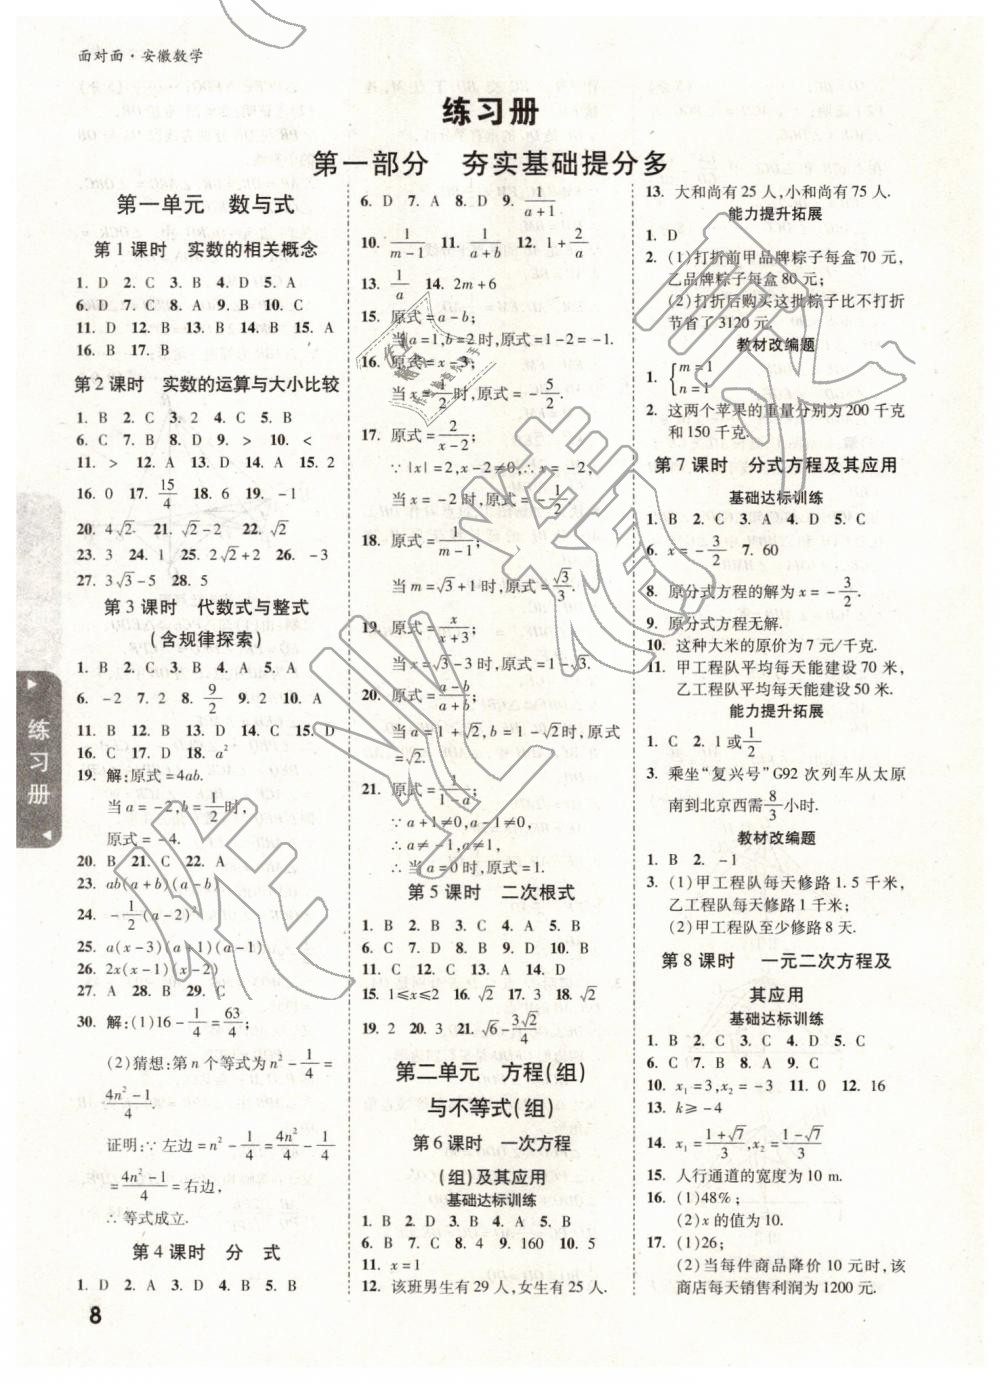 面对面·安徽数学
练习册
第一部分 夯实基础提分多
第一单元 数与式
第1课时 实数的相关概念
1. D 2. C 3. B 4. D 5. A
6. D 7. C 8. A 9. B 10. C
11. D 12. B 13. B 14. B 15. A
16. B 17. B
第2课时 实数的运算与大小比较
1. B 2. C 3. 2 4. C 5. B
6. C 7. B 8. D 9. > 10. <
11. > 12. A 13. D 14. A 15. 2
16. 0 17. 15/4 18. 6 19. -1
20. 4√2 21. √2-2 22. √2
23. 3 24. 1 25. 2√2+2 26. -3
27. 3√3-5 28. 5
第3课时 代数式与整式
(含规律探索)
1. B 2. C 3. B 4. A 5. A
6. -2 7. 2 8. 9/2 9. 2 10. A
11. B 12. B 13. D 14. C 15. D
16. C 17. D 18. a²
19. 解:原式=4ab.
当a=-2,b=1/2时,
原式=-4.
20. B 21. C 22. A
23. ab(a+b)(a-b)
24. -1/2(a-2)²
25. a(x-3)(a+1)(a-1)
26. 2x(x-1)(x-2)
27. A 28. B 29. C
30. 解:(1)16-1/4=63/4;
(2)猜想:第n个等式为n²-1/4=
(4n²-1)/4.
证明:∵左边=n²-1/4=4n²/4-1/4
=(4n²-1)/4=右边,
∴等式成立.
第4课时 分 式
1. D 2. A 3. D 4. A 5. B
6. D 7. A 8. D 9. 1/(a+1)
10. 1/(m-1) 11. 1/(a+b) 12. 1+2/a
13. 1/a 14. 2m+6
15. 原式=a-b;
当a=1,b=2时,原式=-1.
16. 原式=x-3;
当x=1/2时,原式=-5/2.
17. 原式=2/(x-2);
∵|x|=2,x-2≠0,∴x=-2,
当x=-2时,原式=-1/2.
18. 原式=1/(m-1);
当m=√3+1时,原式=√3/3.
19. 原式=x/(x+3);
当x=√3-3时,原式=
20. 原式=(a-b)/(a+b);
当a=1+√2,b=1-√2时,原式
=√2.
21. 原式=1/(1-a);
∵a+1≠0,a≠0,
∴a≠-1,a≠1,
∴当a=0时,原式=1.
第5课时 二次根式
1. B 2. B 3. C 4. A 5. B
6. C 7. D 8. B 9. D 10. B
11. C 12. C 13. C 14. D
15. 1≤x≤2 16. √2 17. 3 18. √2
19. 2 20. 3 21. √6-3√2/4
第二单元 方程(组)
与不等式(组)
第6课时 一次方程
(组)及其应用
基础达标训练
1. B 2. D 3. B 4. A 5. B
6. B 7. B 8. 4 9. 160 10. 5
11. x=1
12. 该班男生有29人,女生有25人.
13. 大和尚有25人,小和尚有75人.
能力提升拓展
1. D
2. (1)打折前甲品牌粽子每盒70元,
乙品牌粽子每盒80元;
(2)打折后购买这批粽子比不打折
节省了3120元.
教材改编题
1. {m=1
n=1
2. 这两个苹果的重量分别为200千克
和150千克.
第7课时 分式方程及其应用
基础达标训练
1. B 2. C 3. A 4. D 5. C
6. x=-3/2 7. 60
8. 原分式方程的解为x=-3/2.
9. 原分式方程无解.
10. 这种大米的原价为7元/千克.
11. 甲工程队平均每天能建设70米,
乙工程队平均每天能建设50米.
能力提升拓展
1. C 2. 1或1/2
3. 乘坐“复兴号”G92次列车从太原
南到北京西需8/3小时.
教材改编题
1. B 2. -1
3. (1)甲工程队每天修路1.5千米,
乙工程队每天修路1千米;
(2)甲工程队至少修路8天.
第8课时 一元二次方程及
其应用
基础达标训练
1. B 2. C 3. C 4. D 5. C
6. C 7. B 8. A 9. C
10. x₁=3,x₂=-2 11. 0 12. 16
13. k≥-4
14. x₁=(1+√7)/3,x₂=(1-√7)/3.
15. 人行通道的宽度为10 m.
16. (1)48%;
(2)x的值为10.
17. (1)26;
(2)当每件商品降价10元时,该
商店每天销售利润为1200元.
练习册
8